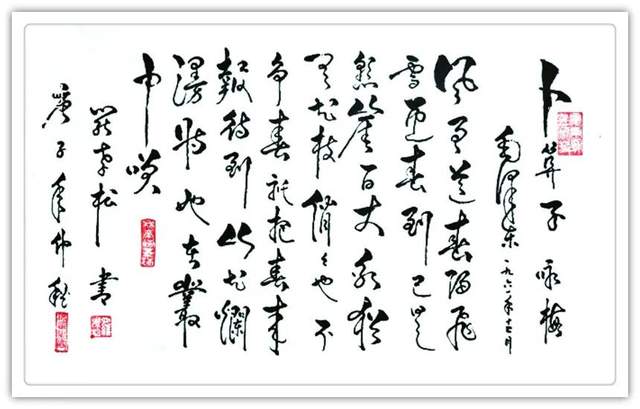 卜算子 咏梅
毛泽东 一九六一年十二月
风雨送春归飞
雪迎春到已是
悬崖百丈冰犹
有花枝俏々也不
争春只把春来
報待到山花爛
漫时她在叢
中笑
松書
庚子年仲秋